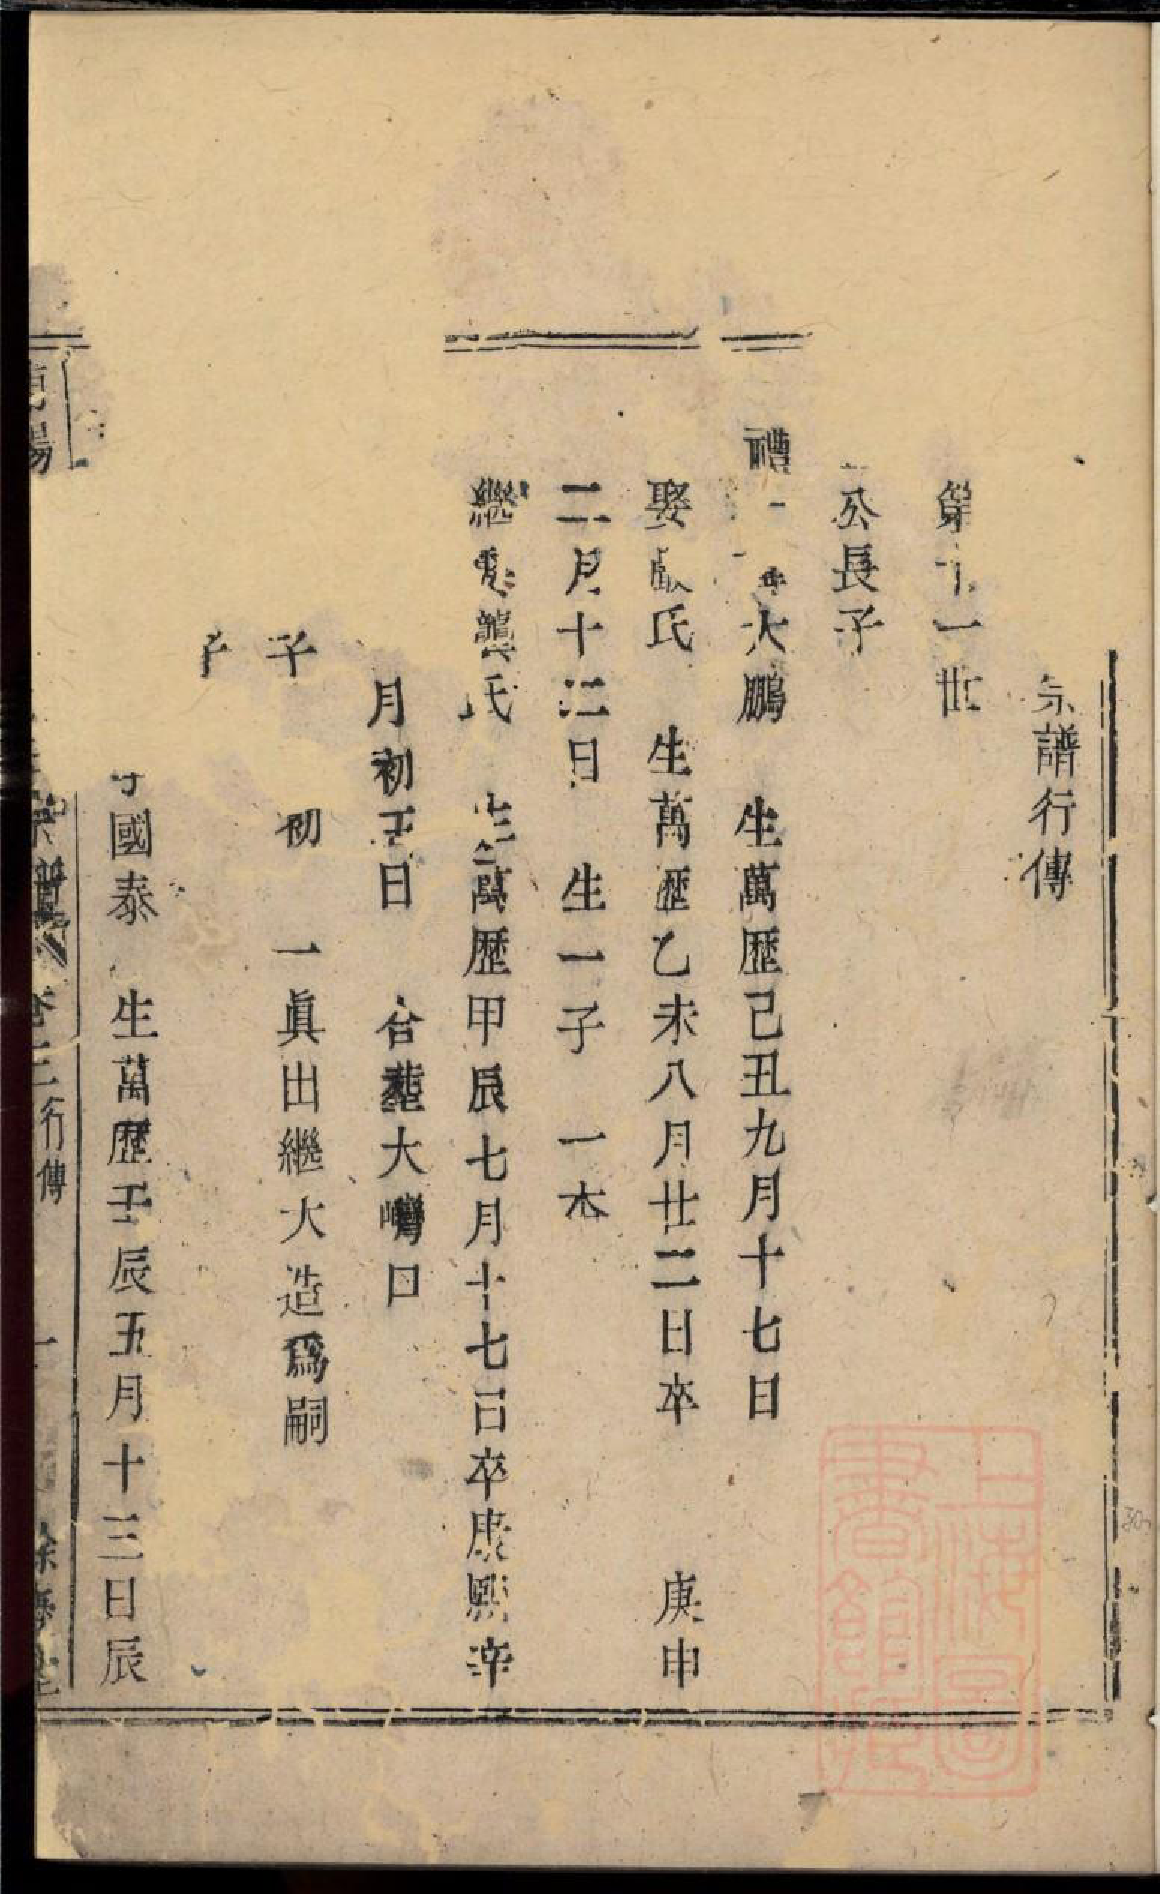 宗譜行傳
第十一世
公長子
禮 大鵬 生萬歷己丑九月十七日
娶 氏 生萬歷乙未八月廿二日卒 庚申
二月十二日 生一子 一本
繼娶龔氏 生萬歷甲辰七月十七日卒康熙辛
月初五日 合葬大灣口
子 初 一眞出繼大造爲嗣
子
字國泰 生萬歷壬辰五月十三日辰
宗譜 卷三行傳 一 餘慶堂
上海圖書館藏